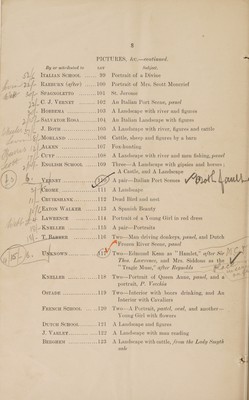 8
PICTURES, &c.—continued.
By or attributed to LOT Subject
Italian School ...... 99 Portrait of a Divine
Raeburn (after) ......100 Portrait of Mrs. Scott Moncrief
Spagnoletto ......101 St. Jerome
C. J. Vernet ......102 An Italian Port Scene, panel
Hobbema ......103 A Landscape with river and figures
Salvator Rosa ......104 An Italian Landscape with figures
J. Both ......105 A Landscape with river, figures and cattle
Morland ......106 Cattle, sheep and figures by a barn
Alken ......107 Fox-hunting
Cuyp ......108 A Landscape with river and men fishing, panel
English School ......109 Three—A Landscape with gipsies and horses;
A Castle, and A Landscape
Vernet 110 A pair—Italian Port Scenes
Crome ......111 A Landscape
Cruikshank ......112 Dead Bird and nest
Eaton Walker ......113 A Spanish Beauty
Lawrence ......114 Portrait of a Young Girl in red dress
Kneller ......115 A pair—Portraits
T. Barker ......116 Two—Man driving donkeys, panel, and Dutch
Frozen River Scene, panel
Unknown 117 Two—Edmund Kean as "Hamlet," after Sir
Thos. Lawrence, and Mrs. Siddons as the
"Tragic Muse," after Reynolds
Kneller ......118 Two—Portrait of Queen Anne, panel, and a
portrait, P. Vercelst
Ostade ......119 Two—Interior with boors drinking, and An
Interior with Cavaliers
French School ......120 Two—A Portrait, pastel, oval, and another—
Young Girl with flowers
Dutch School ......121 A Landscape and figures
J. Varley ......122 A Landscape with man reading
Berghem ......123 A Landscape with cattle, from the Lady Smyth
sale